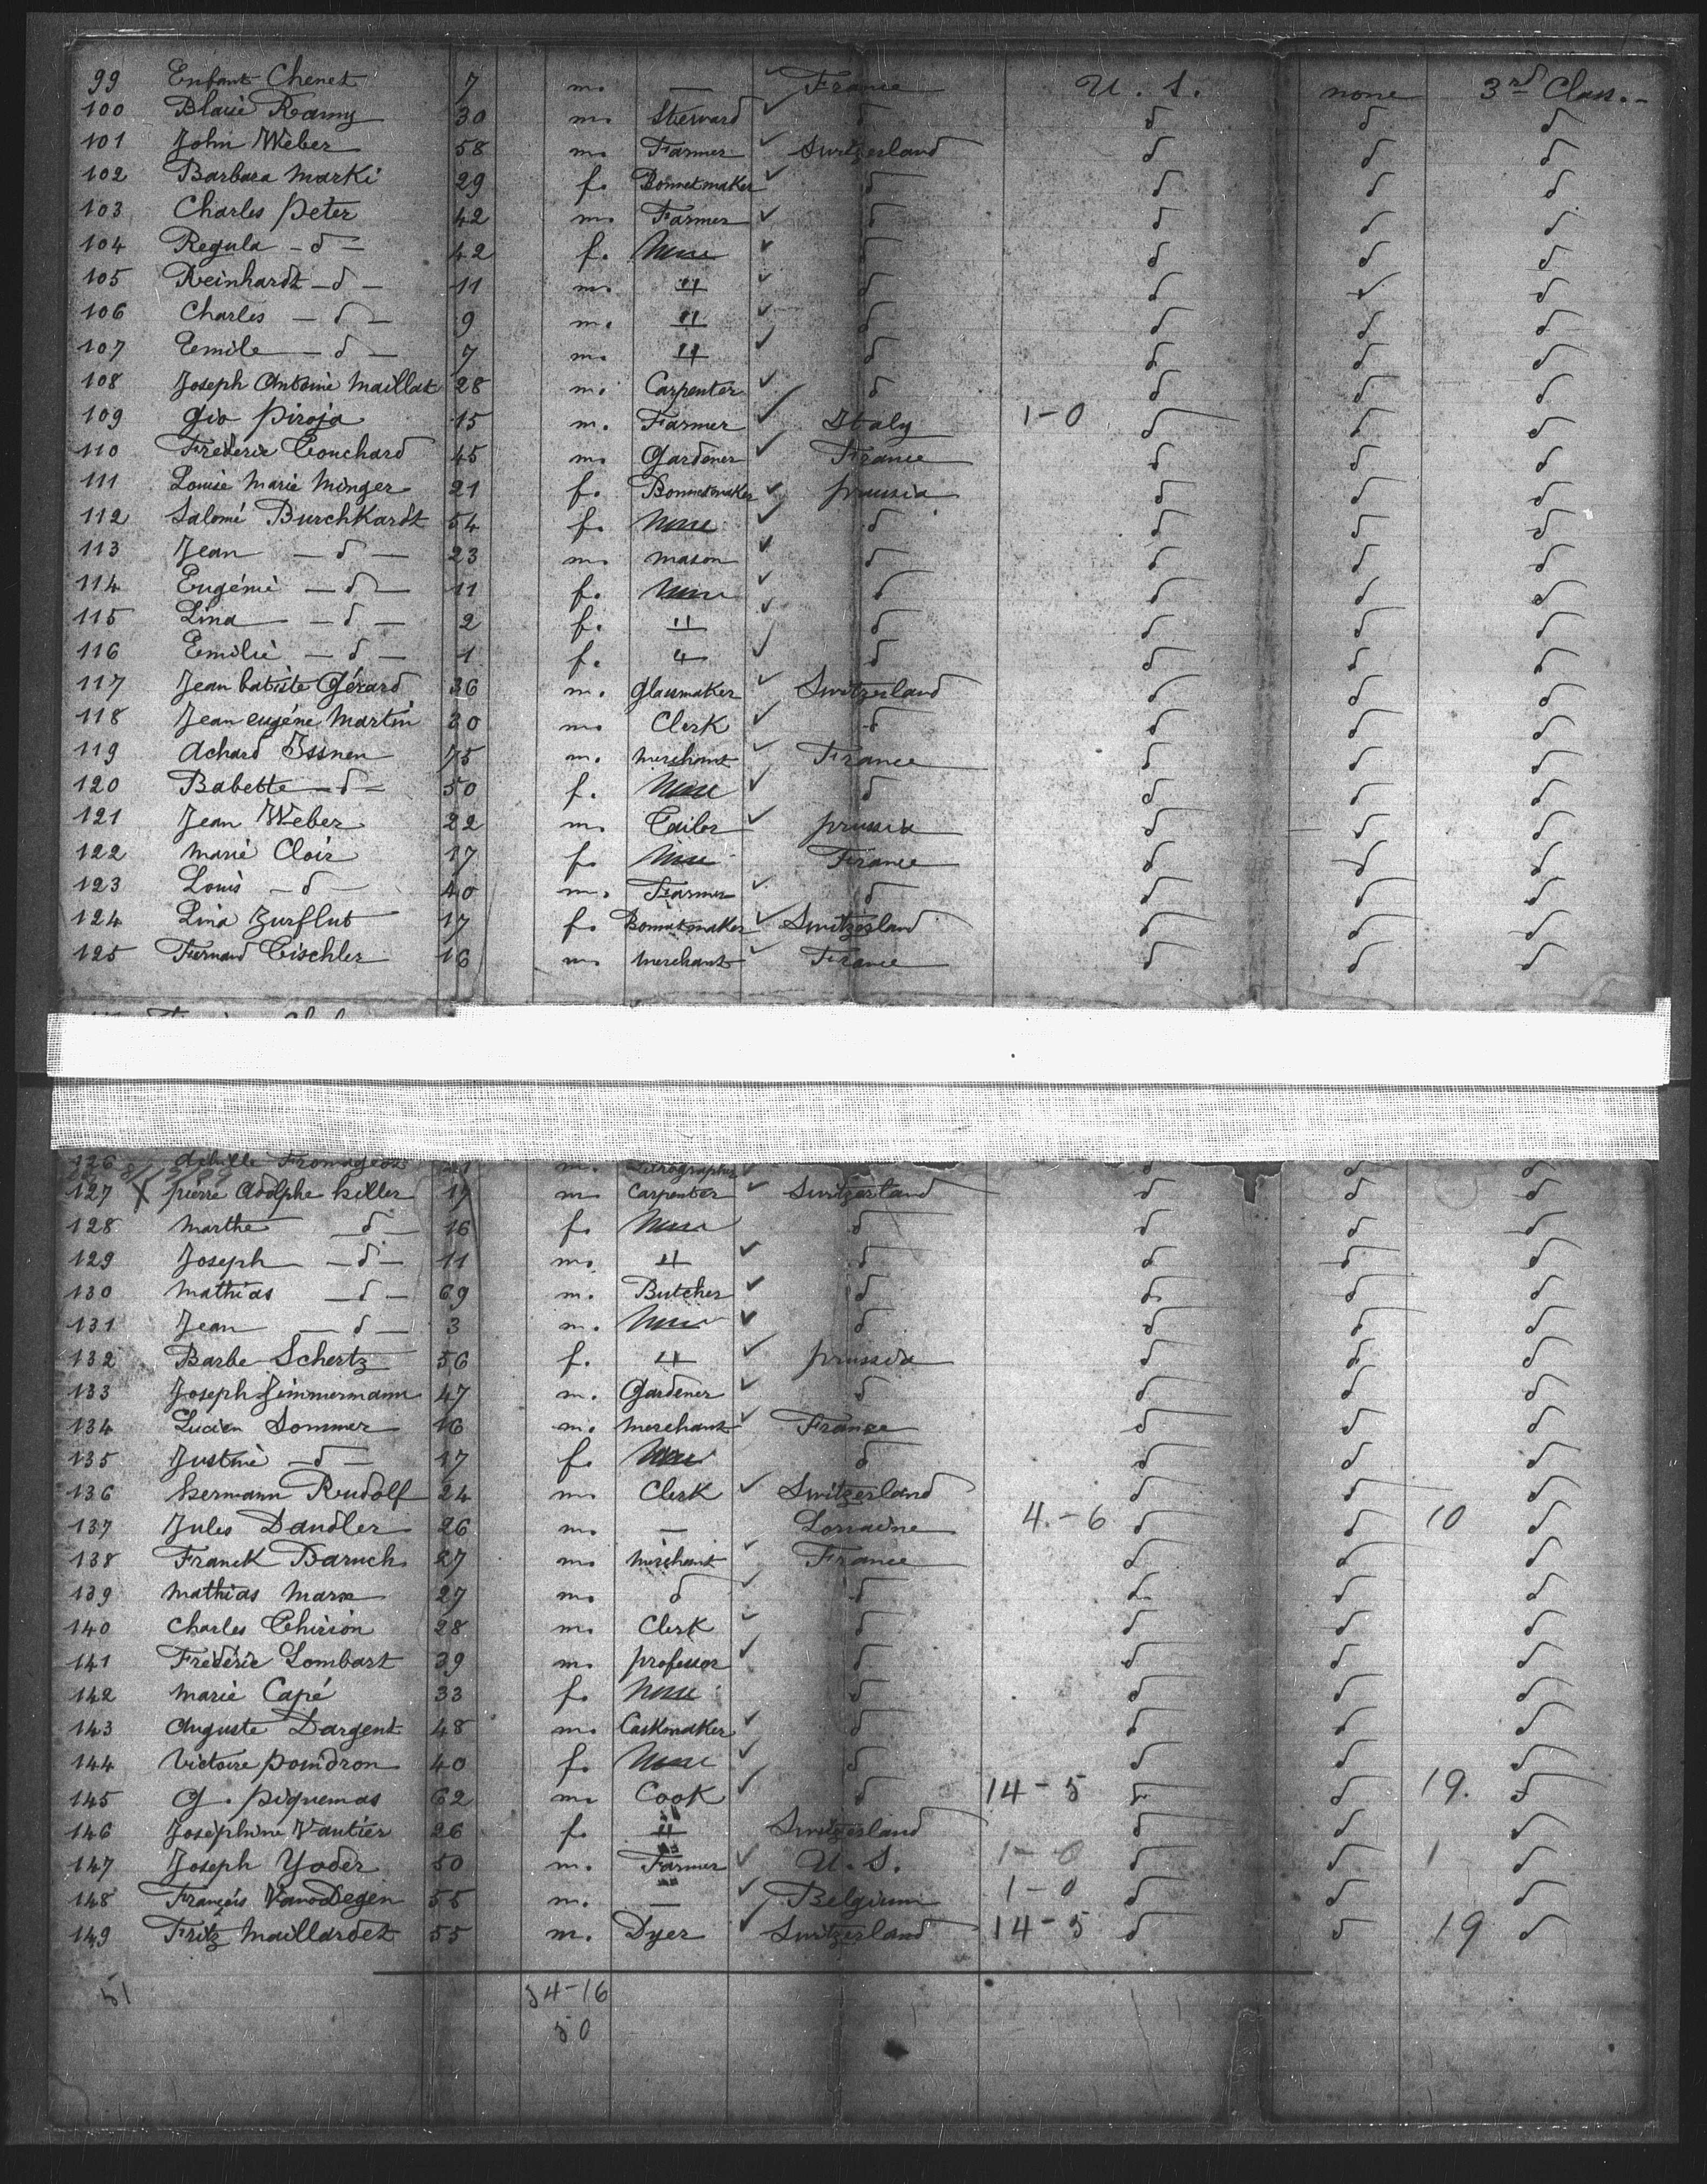 99 Enfant Chenet 7 m. — ✓ France U. S. none 3rd Class. -
100 Blaise Ramy 30 m. Steward ✓ d d d d
101 John Weber 58 m. Farmer ✓ Switzerland d d d
102 Barbara Marki 29 f. Bonnetmaker ✓ d d d d
103 Charles Peter 42 m. Farmer ✓ d d d d
104 Regula - d - 42 f. None ✓ d d d d
105 Reinhardt - d - 11 m. " ✓ d d ✓ d
106 Charles - d - 9 m. " ✓ d d d d
107 Emile - d - 7 m. " ✓ d d d d
108 Joseph Antoine Maillat 28 m. Carpenter ✓ d d d d
109 Gio Piroja 15 m. Farmer ✓ Italy 1-0 d d d
110 Frederic Couchard 45 m. Gardener ✓ France d d d
111 Louise Marie Minger 21 f. Bonnetmaker ✓ prussia d d d
112 Salomé Burchkardt 54 f. None ✓ d d d d
113 Jean - d - 23 m. mason ✓ d d d d
114 Eugénie - d - 11 f. None ✓ d d d d
115 Lina - d - 2 f. " ✓ d d d d
116 Emilie - d - 1 f. " ✓ d d d d
117 Jean batiste Gérard 36 m. Glassmaker ✓ Switzerland d d d
118 Jean eugéne Martin 30 m. Clerk ✓ d d d d
119 Achard Issnen 75 m. merchant ✓ France d d d
120 Babette - d - 50 f. None ✓ d d d d
121 Jean Weber 22 m. Tailor ✓ prussia d d d
122 Marie Cloir 17 f. None France d d d
123 Louis - d - 40 m. Farmer ✓ d d d d
124 Lina Zurflut 17 f. Bonnetmaker ✓ Switzerland d d d
125 Fernand Tischler 16 m. merchant ✓ France d d d
126 Achille Fromageot 21 m. Litrographer ✓ d d d
127 X pierre Adolphe hiller 17 m. Carpenter ✓ Switzerland d d d
128 Marthe - d - 16 f. None d d d d
129 Joseph - d - 11 m. " ✓ d d d d
130 Mathias - d - 69 m. Butcher ✓ d d d d
131 Jean - d - 3 m. None ✓ d d d d
132 Barbe Schertz 56 f. " ✓ prussia d d d
133 Joseph Zimmermann 47 m. Gardener ✓ d d d d
134 Lucien Sommer 16 m. merchant ✓ France d d d
135 Justine - d - 17 f. None d d d d
136 hermann Rudolf 24 m. Clerk ✓ Switzerland d d d
137 Jules Dandler 26 m. — Lorraine 4-6 d d 10 d
138 Franck Baruch 27 m. merchant ✓ France d d d
139 Mathias Marx 27 m. d ✓ d d d d
140 Charles Thirion 28 m. Clerk ✓ d d d d
141 Fréderic Lombart 39 m. professor ✓ d d d d
142 Marie Capé 33 f. None d d d d
143 Auguste Dargent 48 m. Caskmaker ✓ d d d d
144 Victoire poindron 40 f. None ✓ d d d d
145 G. piquemas 62 m. Cook ✓ d 14-5 d d 19. d
146 Joséphine Vautier 26 f. " Switzerland d d d
147 Joseph Yoder 50 m. Farmer ✓ U. S. 1-0 d d 1 d
148 François 55 m. — ✓ Belgium 1-0 d d d
149 Fritz Maillardet 55 m. Dyer ✓ Switzerland 14-5 d d 19 d
51 34-16
50